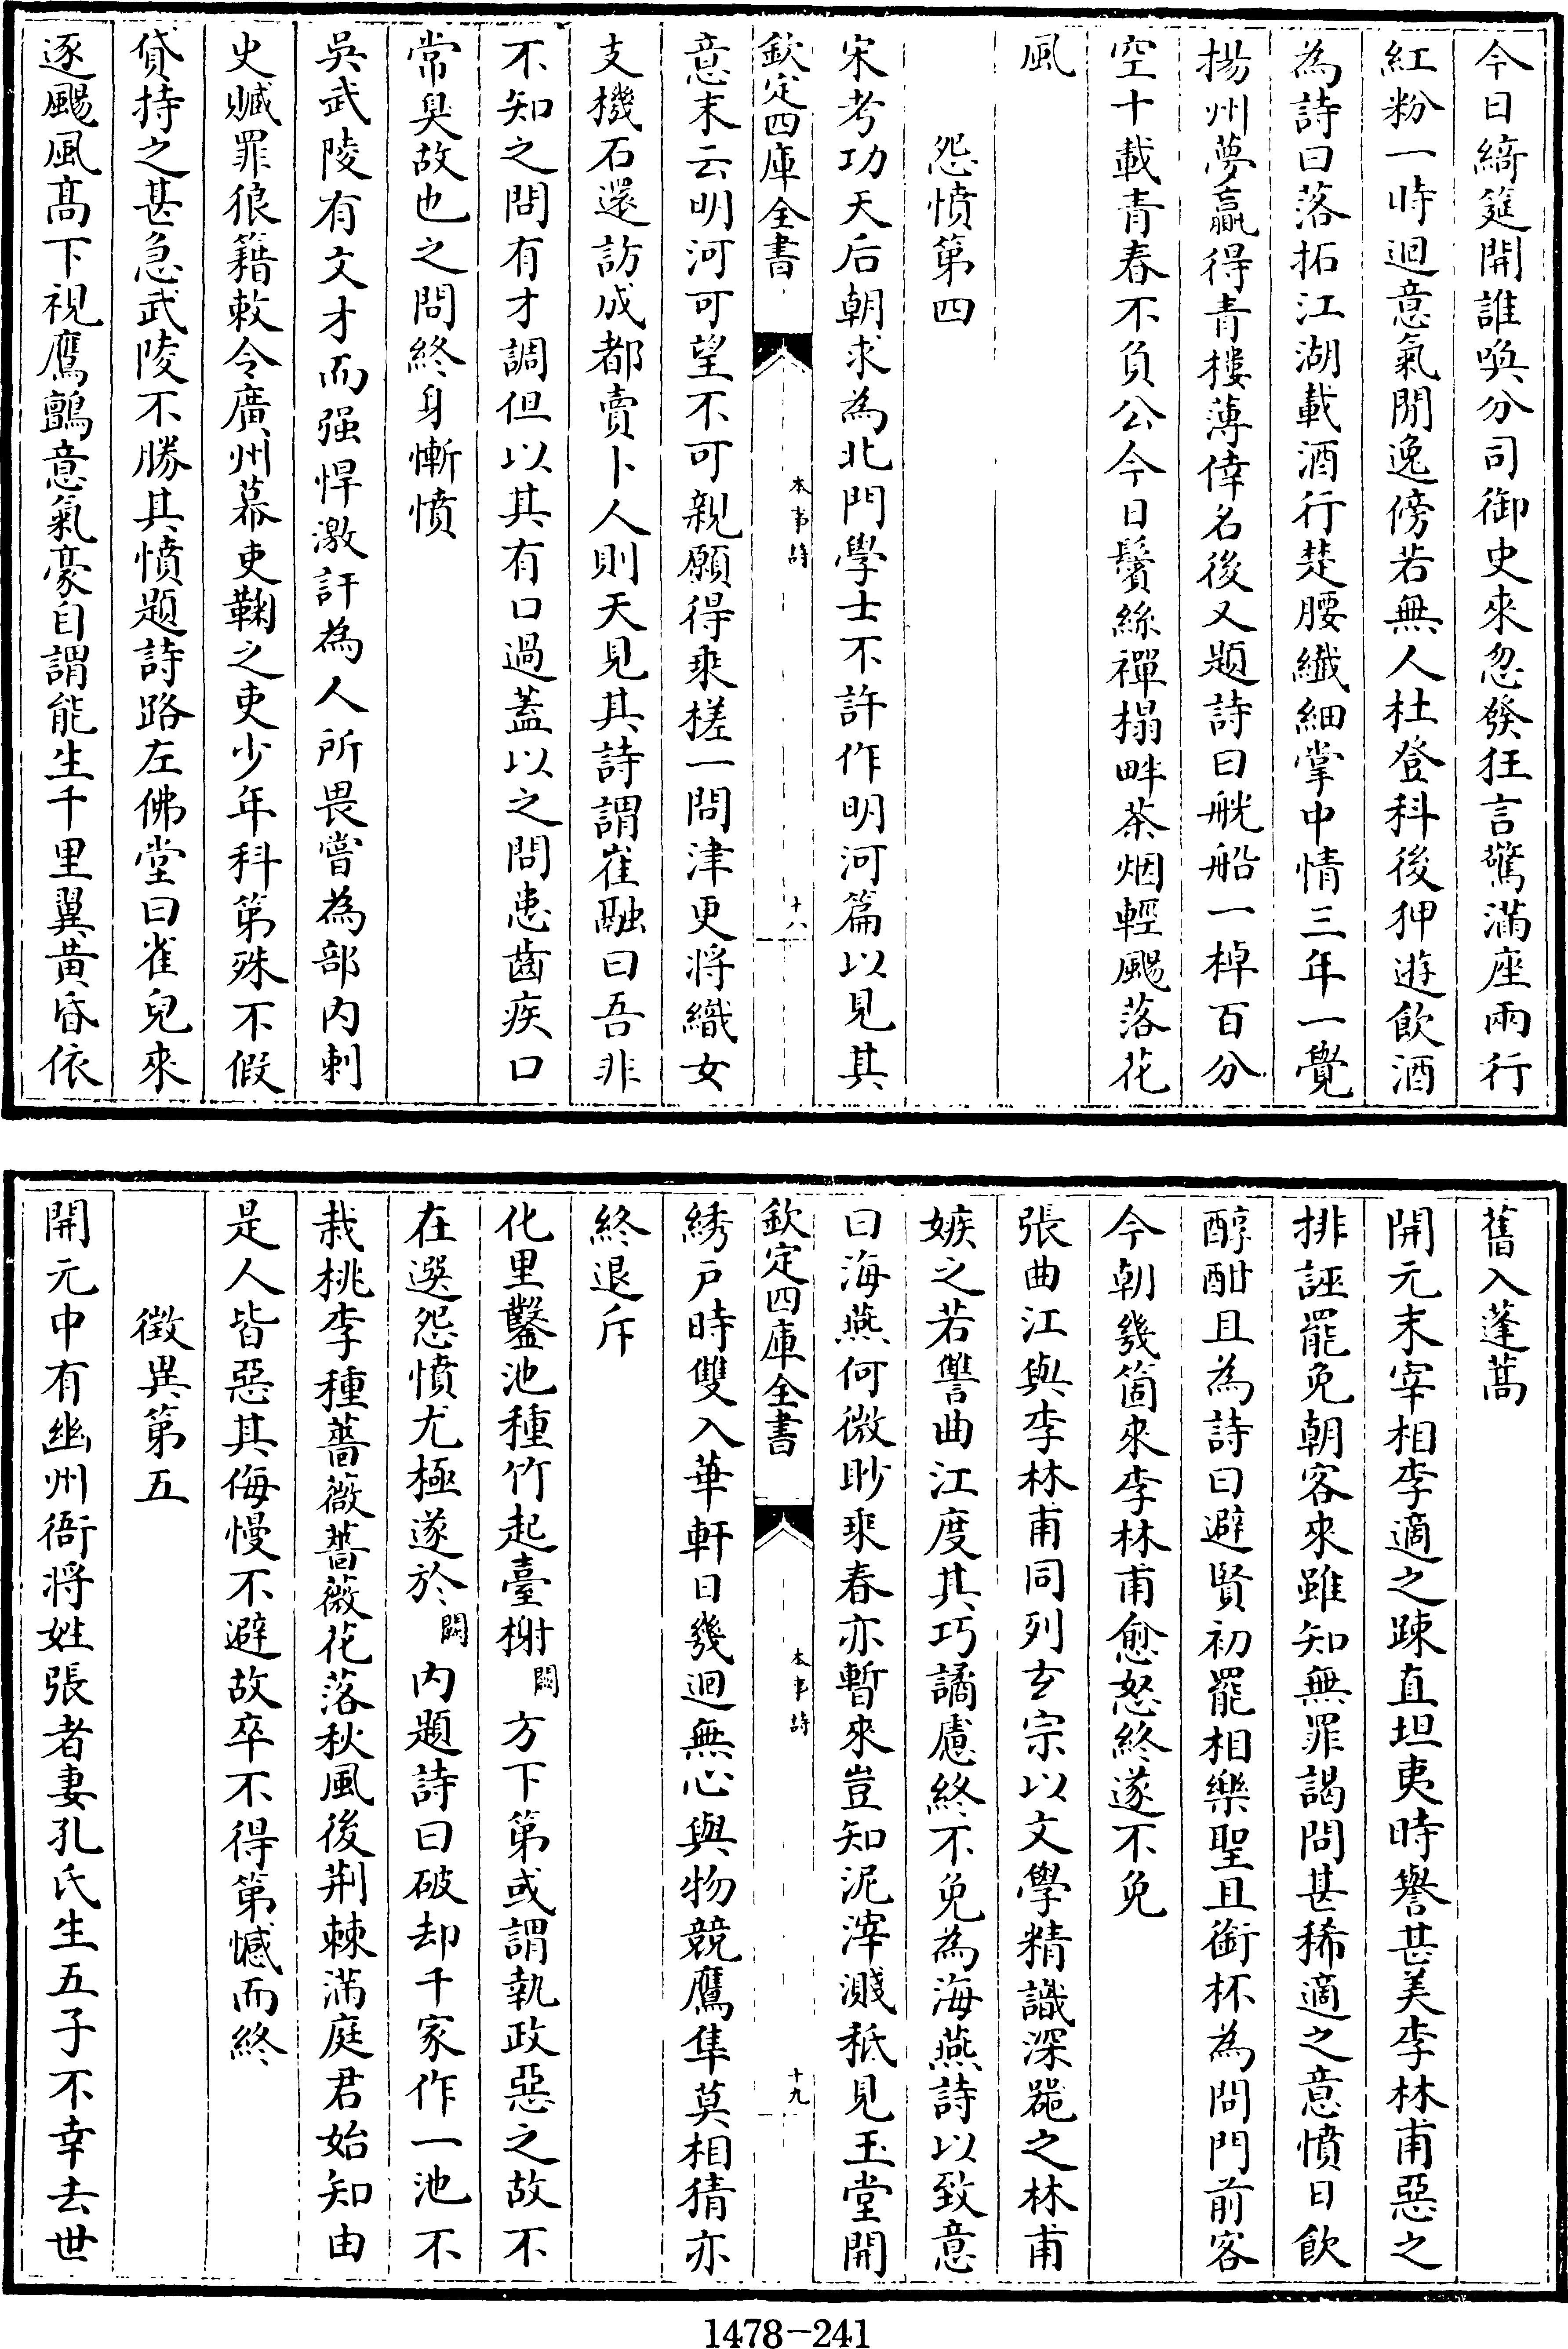 今日綺筵開誰喚分司御史來忽發狂言驚滿座兩行
紅粉一時迴意氣閒逸傍若無人杜登科後狎遊飲酒
為詩曰落拓江湖載酒行楚腰纖細掌中情三年一覺
揚州夢贏得青樓薄倖名後又題詩曰舩船一棹百分
空十載青春不負公今日鬢絲禪榻畔茶烟輕颺落花
風
怨憤第四
宋考功天后朝求為北門學士不許作明河篇以見其
欽定四庫全書
本事詩
十八
意末云明河可望不可親願得乘槎一問津更將織女
支機石還訪成都賣卜人則天見其詩謂崔融曰吾非
不知之問有才調但以其有口過蓋以之問患齒疾口
常臭故也之問終身慚憤
吳武陵有文才而强悍激訐為人所畏嘗為部內刺
史贓罪狼籍敕令廣州幕吏鞫之吏少年科第殊不假
貸持之甚急武陵不勝其憤題詩路左佛堂曰雀兒來
逐颺風髙下視鷹鸇意氣豪自謂能生千里翼黃昏依
舊入蓬蒿
開元末宰相李適之踈直坦夷時譽甚美李林甫惡之
排誣罷免朝客來雖知無罪謁問甚稀適之意憤日飲
醇酣且為詩曰避賢初罷相樂聖且銜杯為問門前客
今朝幾箇來李林甫愈怒終遂不免
張曲江與李林甫同列玄宗以文學精識深器之林甫
嫉之若讐曲江度其巧譎慮終不免為海燕詩以致意
曰海燕何微眇乘春亦暫來豈知泥滓濺秪見玉堂開
欽定四庫全書
本事詩
十九
綉戶時雙入華軒日幾迴無心與物競鷹隼莫相猜亦
終退斥
化里鑿池種竹起臺榭闕方下第或謂執政惡之故不
在選怨憤尤極遂於闕內題詩曰破却千家作一池不
栽桃李種薔薇薔薇花落秋風後荆棘滿庭君始知由
是人皆惡其侮慢不避故卒不得第憾而終
徵異第五
開元中有幽州衙將姓張者妻孔氏生五子不幸去世
1478-241